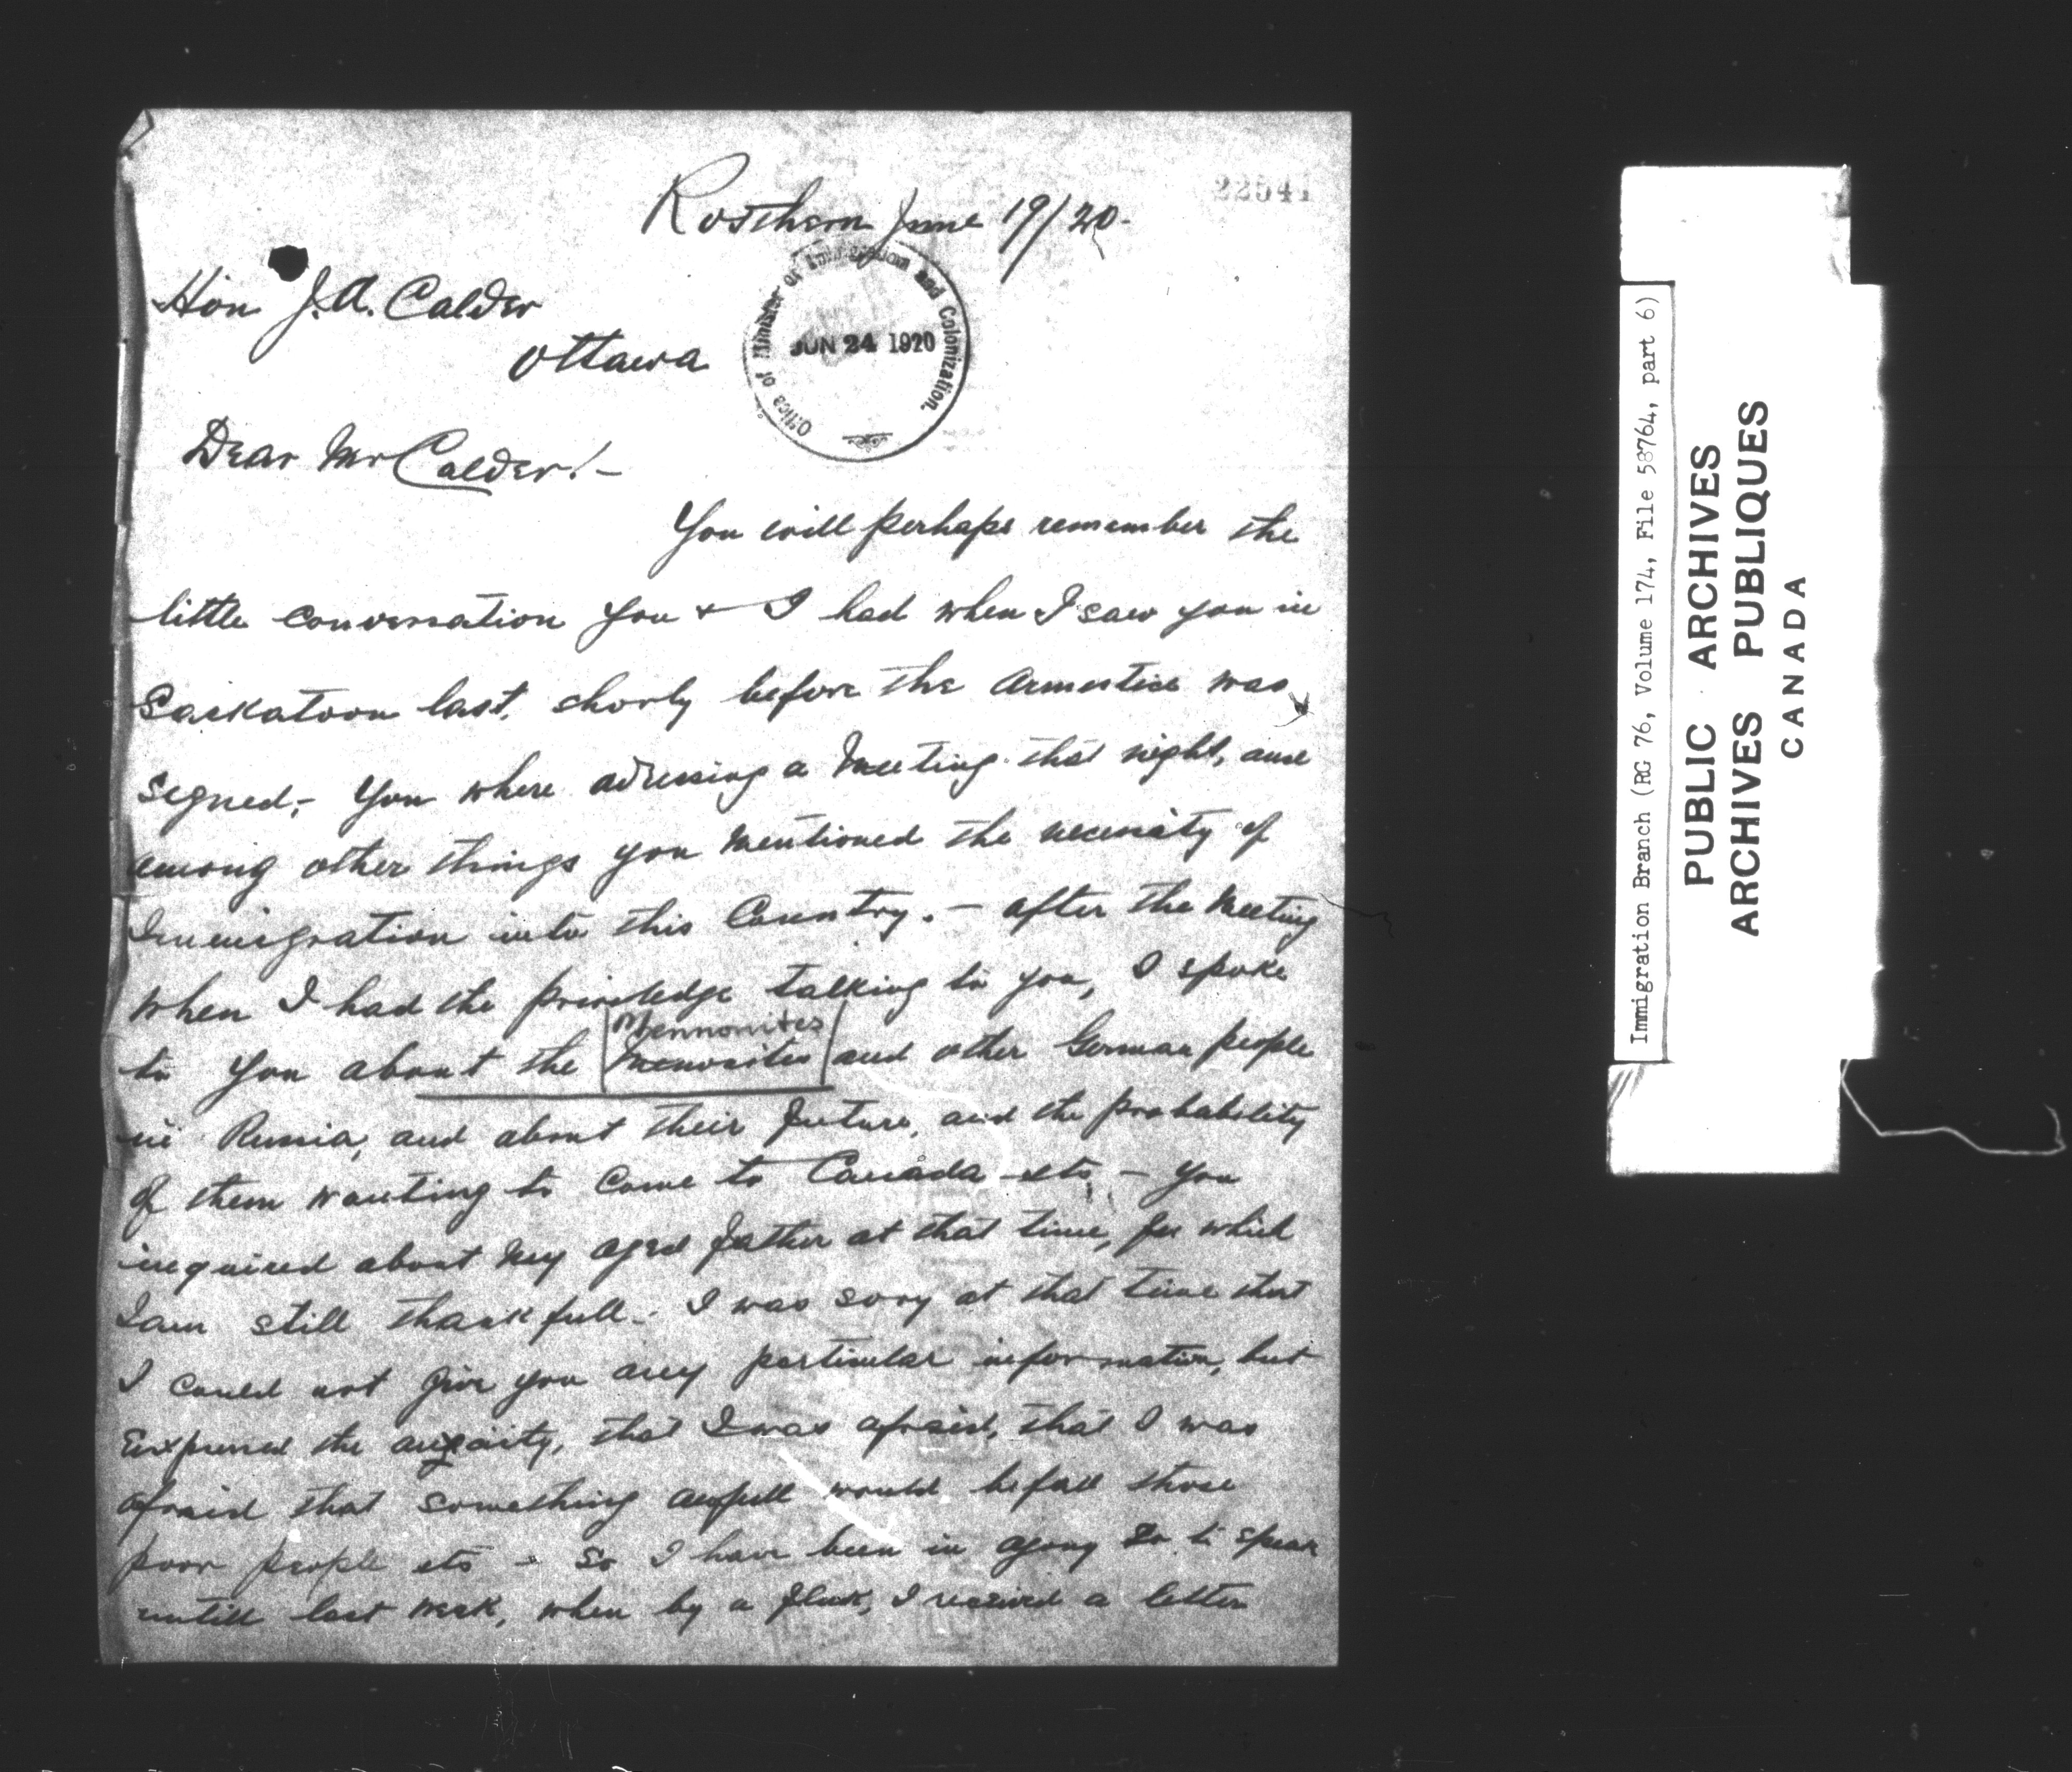 22541
Rosthern June 19/20-
Hon J.A. Calder
Ottawa
Office of Minister of Immigration and Colonization.
JUN 24 1920
Dear Mr Calder!-
You will perhaps remember the
little conversation you & I had when I saw you in
Saskatoon last, shorly before the Armestice was
segned,- You where adressing a Meeting that night, and
among other things you mentioned the necessity of
Immigration into this Country. - after the Meeting
when I had the priveledge talking to you, I spoke
Mennonites
to you about the Menonites and other German people
in Russia, and about their future, and the probability
of them wanting to come to Canada etc - You
inquired about my aged father at that time, for which
I am still thankfull - I was sory at that time that
I could not give you any particular information, but
Expressed the anxiaity, that I was afraid, that I was
afraid that something awfull would befall those
poor people etc - So I have been in agony so to speak
untill last week, when by a fluk, I received a letter
Immigration Branch (RG 76, Volume 174, File 58764, part 6)
PUBLIC ARCHIVES
ARCHIVES PUBLIQUES
CANADA